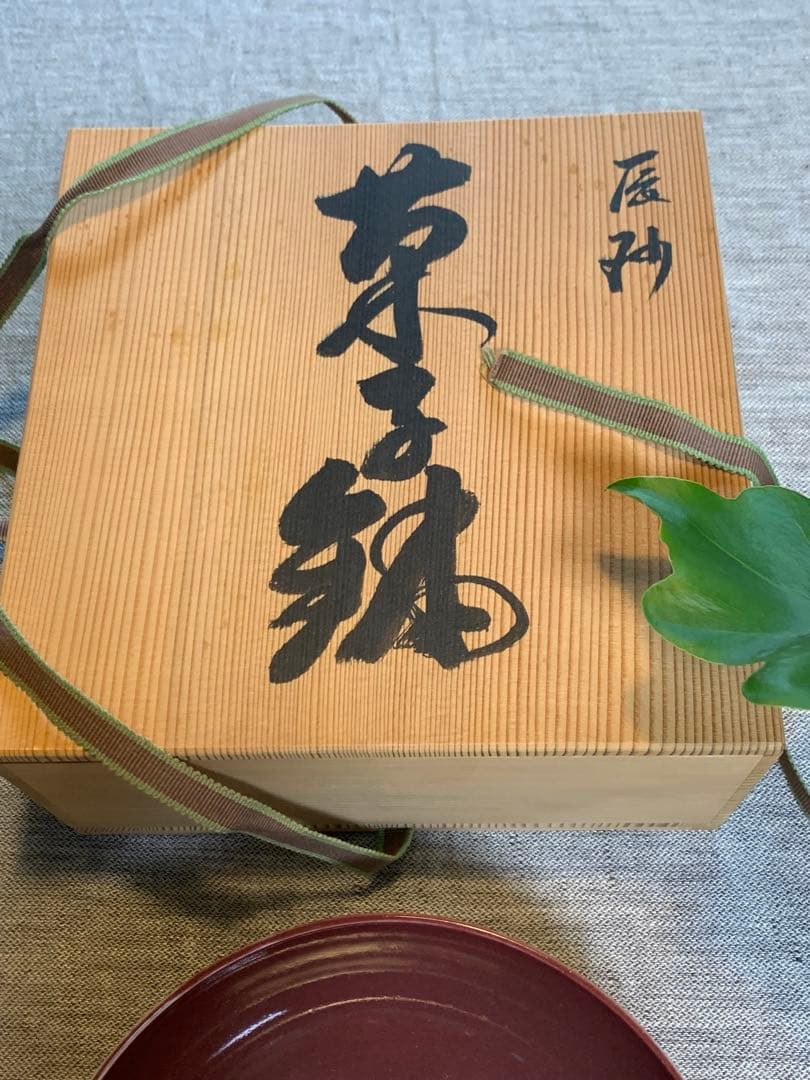 辰砂
菓子鉢